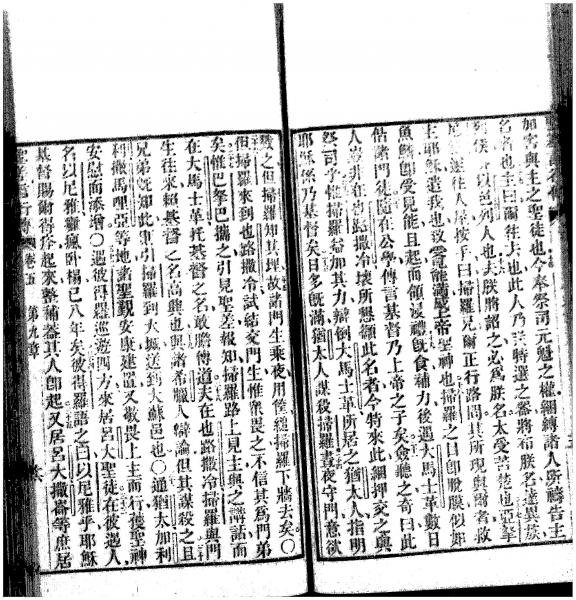 加害與主之聖徒也今奉祭司元魁之權綑縛諸人所禱告主
名者也主曰爾往夫也此人乃特選之器將布朕名達異族
以色列人也夫朕將諭之必爲朕名太受苦楚也亞拿
尼
進人屋按手曰掃羅兄爾正行路間其所現與爾者救
主耶穌遣我也致爾能滿被上帝聖神也掃羅之目卽脫膜似如
魚鱗卽受見能且起而領浸禮旣食補力後遇大馬士革數日
偕諸門徒隨在公學傳言基督乃上帝之子矣僉聽之奇曰此
人豈非在也路撒冷壞所懇籲此名者今特來此綑押交之與
祭司乎惟掃羅益加其力辯倒大馬士革所居之猶太人指明
耶穌乃基督矣日多旣滿猶太人謀殺掃羅晝夜守門意欲
殺之但掃羅知其埋故諸門生乘夜用筐縋掃羅下牆去矣〇
但掃羅來到也路撒冷試結交門生惟衆畏之不信其爲門弟
矣惟巴拏巴攜之引見聖差報知掃羅路上見主與之講話而
在大馬士革托基督之名敢膽傳道夫在也路撒冷掃羅與門
生往來賴基督之名高興也與諸希臘人辯論但其謀殺之且
兄弟旣知此則引掃羅到大城送到大蘇邑也〇通猶太加利
利撒馬哩亞等地諸聖覡安康建置又敬畏上主而行獲聖神
安慰而添增〇遇彼得羅巡遊四方來居呂大聖徒在彼遇人
名以尼雅癱瘋臥榻已八年矣彼得羅語之曰以尼雅乎耶穌
基督賜爾得痊起來整補器其人卽起又居呂大撒崙等庶居
聖差言行傳 卷五 第九章 六